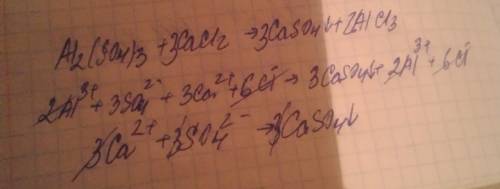 Al₂(SO₄)₃ + 3CaCl₂ → 3CaSO₄↓ + 2AlCl₃
2Al³⁺ + 3SO₄²⁻ + 3Ca²⁺ + 6Cl⁻ → 3CaSO₄↓ + 2Al³⁺ + 6Cl⁻
3Ca²⁺ + 3SO₄²⁻ → 3CaSO₄↓